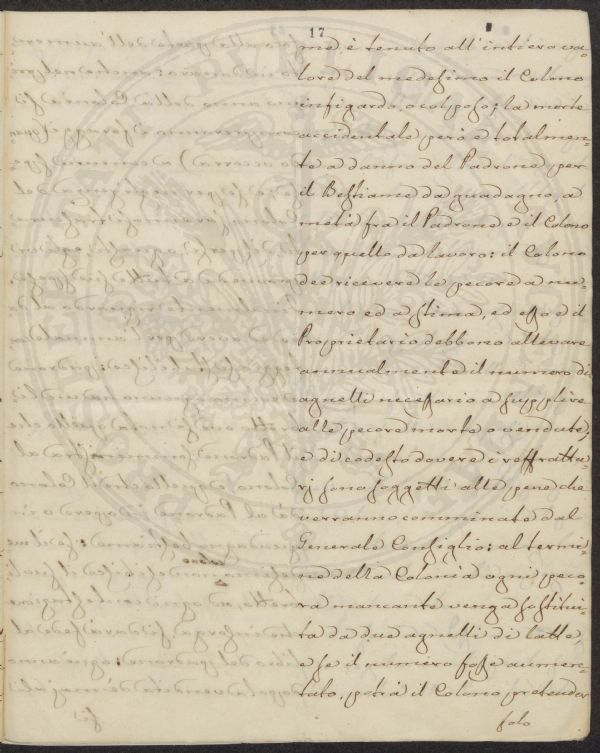 17
me, è tenuto all'intiero va-
lore del medesimo il Colono
infigardo, o colposo; la morte
accidentale però è totalmen-
te a danno del Padrone per
il Bestiame da guadagno, a
metà fra il Padrone e il Colono
per quello da lavoro; il Colono
dee ricevere le pecore a nu-
mero ed a stima, ed esso ed il
Proprietario debbono allevare
annualmente il numero di
agnelli necessario a supplire
alle pecore morte o vendute,
e di codesto dovere i reffrattà-
rj sono soggetti alle pene che
verranno comminate dal
Generale Consiglio; al termi-
ne della Colonìa ogni peco-
ra mancante venga sostitui-
ta da due agnelli di latte,
e se il numero fosse aumen-
tato, potrà il Colono pretender
solo